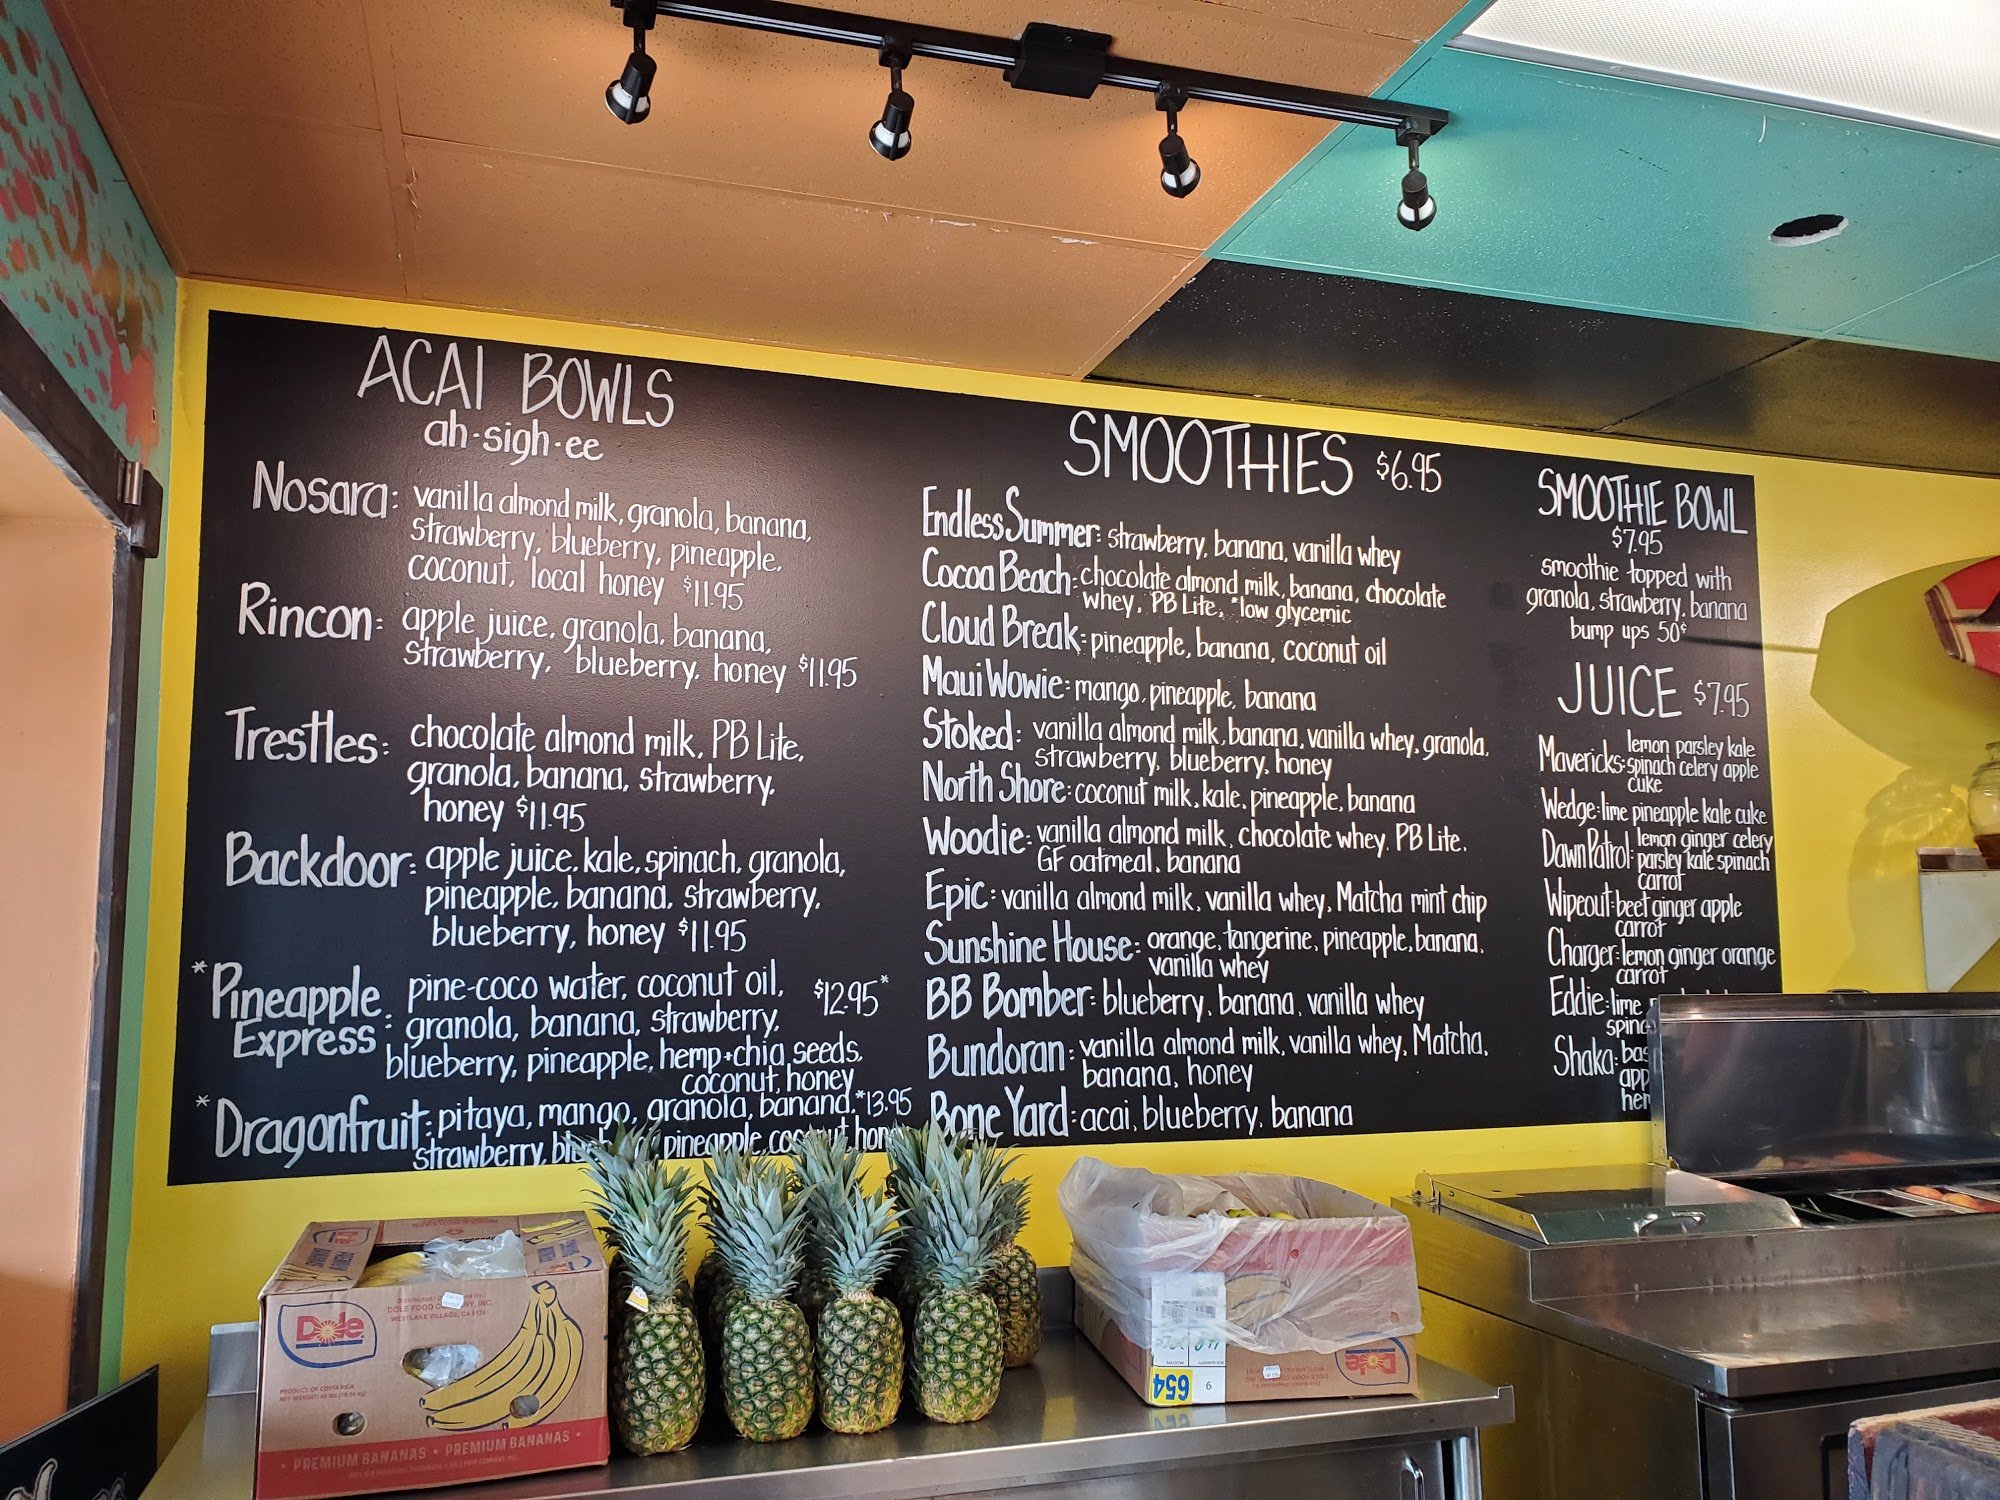 ACAI BOWLS
ah-sigh-ee
Nosara: vanilla almond milk, granola, banana,
strawberry, blueberry, pineapple,
coconut, local honey $11.95
Rincon: apple juice, granola, banana,
strawberry, blueberry, honey $11.95
Trestles: chocolate almond milk, PB Lite,
granola, banana, strawberry,
honey $11.95
Backdoor: apple juice, kale, spinach, granola,
pineapple, banana, strawberry,
blueberry, honey $11.95
*Pineapple Express: pine-coco water, coconut oil, $12.95*
granola, banana, strawberry,
blueberry, pineapple, hemp+chia seeds,
coconut, honey
*Dragonfruit: pitaya, mango, granola, banana, *13.95
strawberry, pineapple,
SMOOTHIES $6.95
Endless Summer: strawberry, banana, vanilla whey
Cocoa Beach: chocolate almond milk, banana, chocolate
whey, PB Lite, *low glycemic
Cloud Break: pineapple, banana, coconut oil
Maui Wowie: mango, pineapple, banana
Stoked: vanilla almond milk, banana, vanilla whey, granola,
strawberry, blueberry, honey
North Shore: coconut milk, kale, pineapple, banana
Woodie: vanilla almond milk, chocolate whey, PB Lite,
GF oatmeal, banana
Epic: vanilla almond milk, vanilla whey, Matcha mint chip
Sunshine House: orange, tangerine, pineapple, banana,
vanilla whey
BB Bomber: blueberry, banana, vanilla whey
Bundoran: vanilla almond milk, vanilla whey, Matcha,
banana, honey
Bone Yard: acai, blueberry, banana
SMOOTHIE BOWL
$7.95
smoothie topped with
granola, strawberry, banana
bump ups 50¢
JUICE $7.95
Mavericks: lemon parsley kale
spinach celery apple
cuke
Wedge: lime pineapple kale cuke
Dawn Patrol: lemon ginger celery
parsley kale spinach
carrot
Wipeout: beet ginger apple
carrot
Charger: lemon ginger orange
carrot
Eddie: lime
Shaka:
Dole
DOLE FOOD COMPANY, INC.
WESTLAKE VILLAGE, CA 91361
PRODUCT OF COSTA RICA
PREMIUM BANANAS • PREMIUM BANANAS •
Dole
654